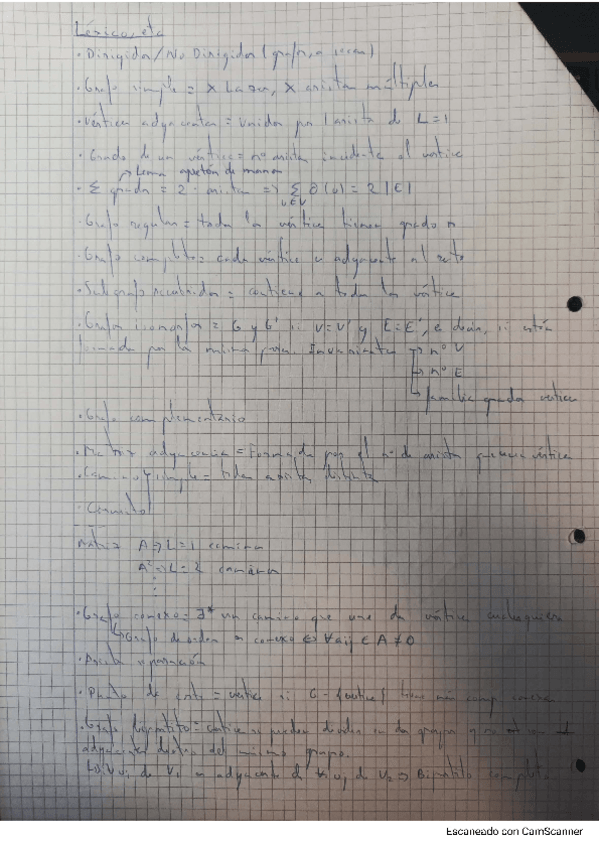 Léxico, etc
· Dirigidos / No Dirigidos (grafos, o sean)
· Grafo simple = X Lazos, X aristas múltiples
· Vértices adyacentes = Unidos por 1 arista de L=1
· Grado de un vértice = nº aristas incidentes al vértice
→ Lema apretón de manos
· Σ grados = 2 · aristas => Σ δ(v) = 2|E|
v∈V
· Grafo regular = todos los vértices tienen grado n
· Grafo completo = cada vértice es adyacente al resto
· Subgrafo recubridor = contiene a todos los vértices
· Grafos isomorfos = G y G' si V=V' y E=E', es decir, si están
formados por la misma Invariantes → nº V
→ nº E
→ familia grados vértices
· Grafo complementario
· Matriz adyacencia = Formada por el nº de aristas vértices
· Camino simple = todas aristas distintas
· Circuito
Matriz A → L=1 caminos
A² → L=2 caminos
· Grafo conexo = ∃ un camino que une dos vértices cualesquiera
→ Grafo de orden n conexo ⇔ ∀aij ∈ A ≠ 0
· Arista separación
· Punto de corte = vértice si G - {vértice} tiene más comp. conexas
· Grafo bipartito = vértices se pueden dividir en dos grupos y no
adyacentes dentro del mismo grupo.
→ Si vi de V1 es adyacente a vj de V2 → Bipartito completo
Escaneado con CamScanner